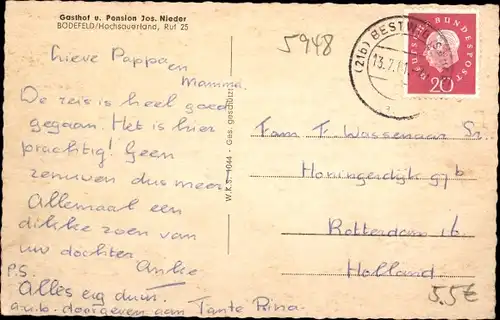 Gasthof u. Pension Jos. Nieder
BÖDEFELD/Hochsauerland, Ruf 25
5948
Lieve Pappa en
Mamma.
De reis is heel goed
gegaan. Het is hier
prachtig! Geen
zenuwen dus meer
Allemaal een
dikke zoen van
uw dochter
Anke
P.S.
Alles erg duur.
a.u.b. doorgeven aan Tante Rina.
W.K.S. 1044 - Ges. geschützt
(21b) BESTWIG
13.7.61
a
DEUTSCHE BUNDESPOST
20
Fam F Wassenaar Sr.
Honingerdijk 97b
Rotterdam 16
Holland
5.5€